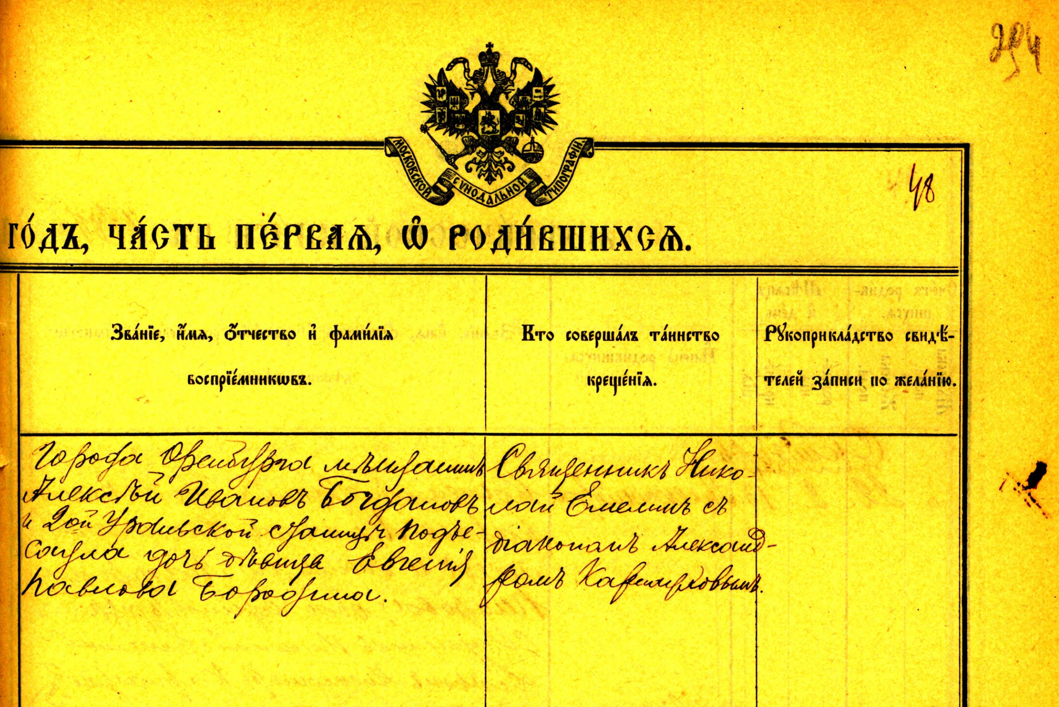 294
МОСКОВСКОЙ СѴНОДАЛЬНОЙ ТИПОГРАФІИ
48
ГО́ДЪ, ЧА́СТЬ ПЕ́РВАѦ, Ѡ҆ РОДИ́ВШИХСѦ.
Зва́нїе, и҆́мѧ, ѻ҆́тчество и҆ фами́лїѧ
воспрїе́мникѡвъ.
Кто соверша́лъ та́инство
креще́нїѧ.
Рꙋкоприкла́дство свидѣ́-
телей за́писи по жела́нїю.
Города Оренбурга мѣщанинъ
Алексѣй Ивановъ Богдановъ
и 2ой Уральской станицы подъе-
саула дочь дѣвица Евгенія
Павлова Бородина.
Священникъ Нико-
лай Емелинъ съ
діакономъ Александ-
ромъ